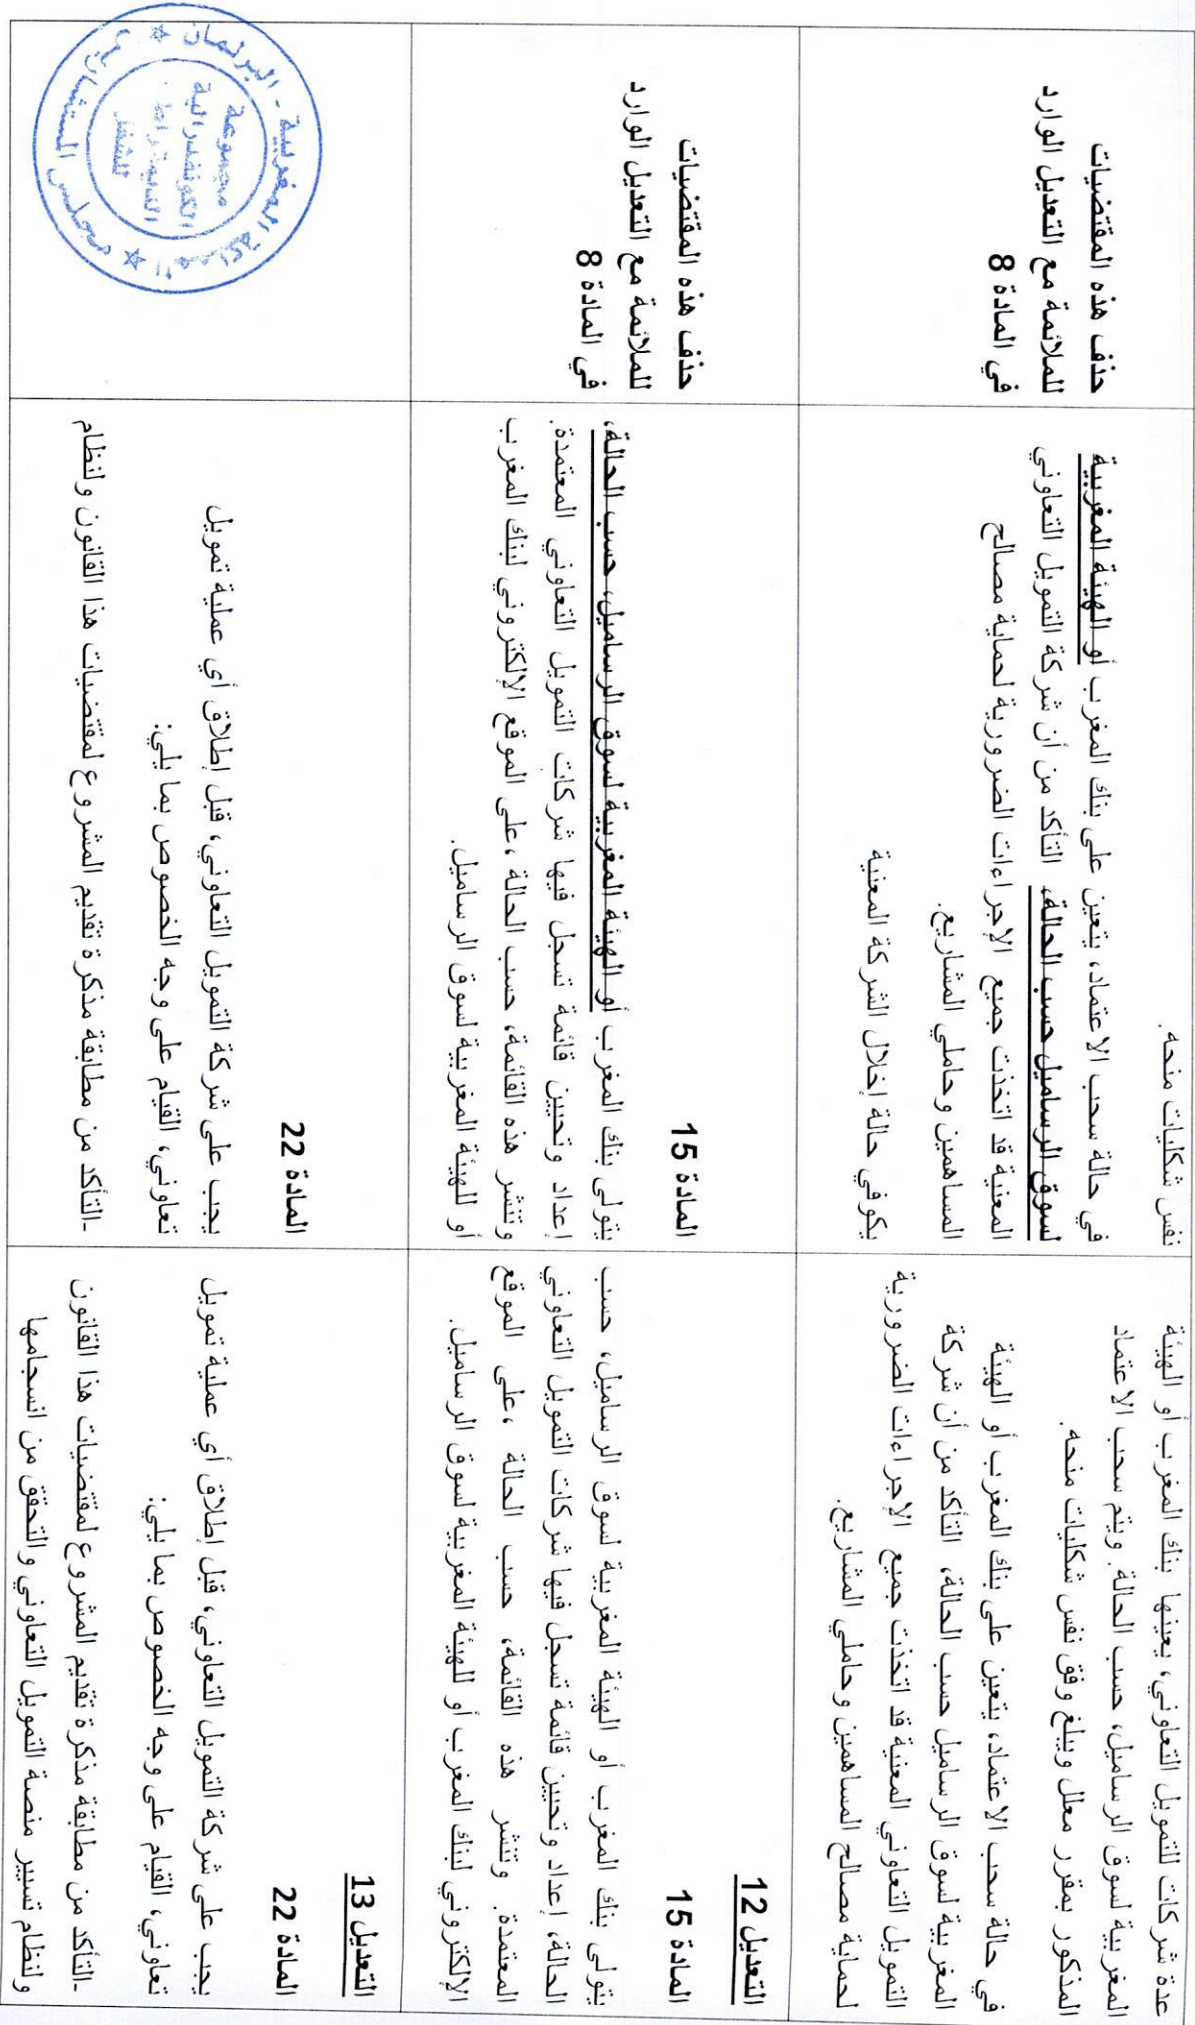 عدة شركات للتمويل التعاوني، يعينها بنك المغرب أو الهيئة
المغربية لسوق الرساميل، حسب الحالة. ويتم سحب الاعتماد
المذكور بمقرر معلل ويبلغ وفق نفس شكليات منحه.
في حالة سحب الاعتماد، يتعين على بنك المغرب أو الهيئة
المغربية لسوق الرساميل حسب الحالة، التأكد من أن شركة
التمويل التعاوني المعنية قد اتخذت جميع الإجراءات الضرورية
لحماية مصالح المساهمين وحاملي المشاريع.
نفس شكليات منحه.
في حالة سحب الاعتماد، يتعين على بنك المغرب أو الهيئة المغربية
لسوق الرساميل حسب الحالة، التأكد من أن شركة التمويل التعاوني
المعنية قد اتخذت جميع الإجراءات الضرورية لحماية مصالح
المساهمين وحاملي المشاريع.
يكوفي حالة إخلال الشركة المعنية
حذف هذه المقتضيات
للملائمة مع التعديل الوارد
في المادة 8
التعديل 12
المادة 15
يتولى بنك المغرب أو الهيئة المغربية لسوق الرساميل، حسب
الحالة، إعداد وتحيين قائمة تسجل فيها شركات التمويل التعاوني
المعتمدة. وتنشر هذه القائمة، حسب الحالة ،على الموقع
الإلكتروني لبنك المغرب أو للهيئة المغربية لسوق الرساميل.
المادة 15
يتولى بنك المغرب أو الهيئة المغربية لسوق الرساميل، حسب الحالة،
إعداد وتحيين قائمة تسجل فيها شركات التمويل التعاوني المعتمدة.
وتنشر هذه القائمة، حسب الحالة ،على الموقع الإلكتروني لبنك المغرب
أو للهيئة المغربية لسوق الرساميل.
حذف هذه المقتضيات
للملائمة مع التعديل الوارد
في المادة 8
التعديل 13
المادة 22
يجب على شركة التمويل التعاوني، قبل إطلاق أي عملية تمويل
تعاوني، القيام على وجه الخصوص بما يلي:
-التأكد من مطابقة مذكرة تقديم المشروع لمقتضيات هذا القانون
ولنظام تسيير منصة التمويل التعاوني والتحقق من انسجامها
المادة 22
يجب على شركة التمويل التعاوني، قبل إطلاق أي عملية تمويل
تعاوني، القيام على وجه الخصوص بما يلي:
-التأكد من مطابقة مذكرة تقديم المشروع لمقتضيات هذا القانون ولنظام
المملكة المغربية - البرلمان ★ مجلس المستشارين ★
مجموعة
الكونفدرالية
الديمقراطية
للشغل